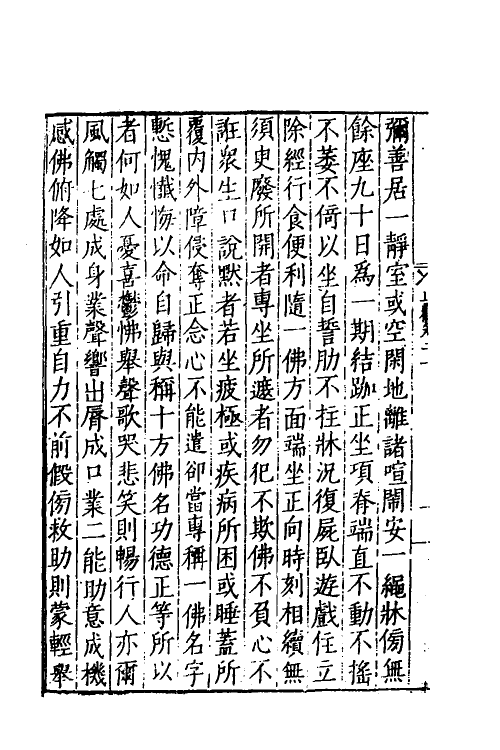 彌善居一靜室或空閑地離諸喧鬧安一繩牀傍無
餘座九十日爲一期結跏正坐項脊端直不動不搖
不萎不倚以坐自誓肋不拄牀況復屍臥遊戲住立
除經行食便利隨一佛方面端坐正向時刻相續無
須臾廢所開者專坐所遮者勿犯不欺佛不負心不
誑衆生口說默者若坐疲極或疾病所困或睡蓋所
覆内外障侵奪正念心不能遣卻當專稱一佛名字
慙愧懺悔以命自歸與稱十方佛名功德正等所以
者何如人憂喜鬱怫舉聲歌哭悲笑則暢行人亦爾
風觸七處成身業聲響出脣成口業二能助意成機
感佛俯降如人引重自力不前假傍救助則蒙輕舉